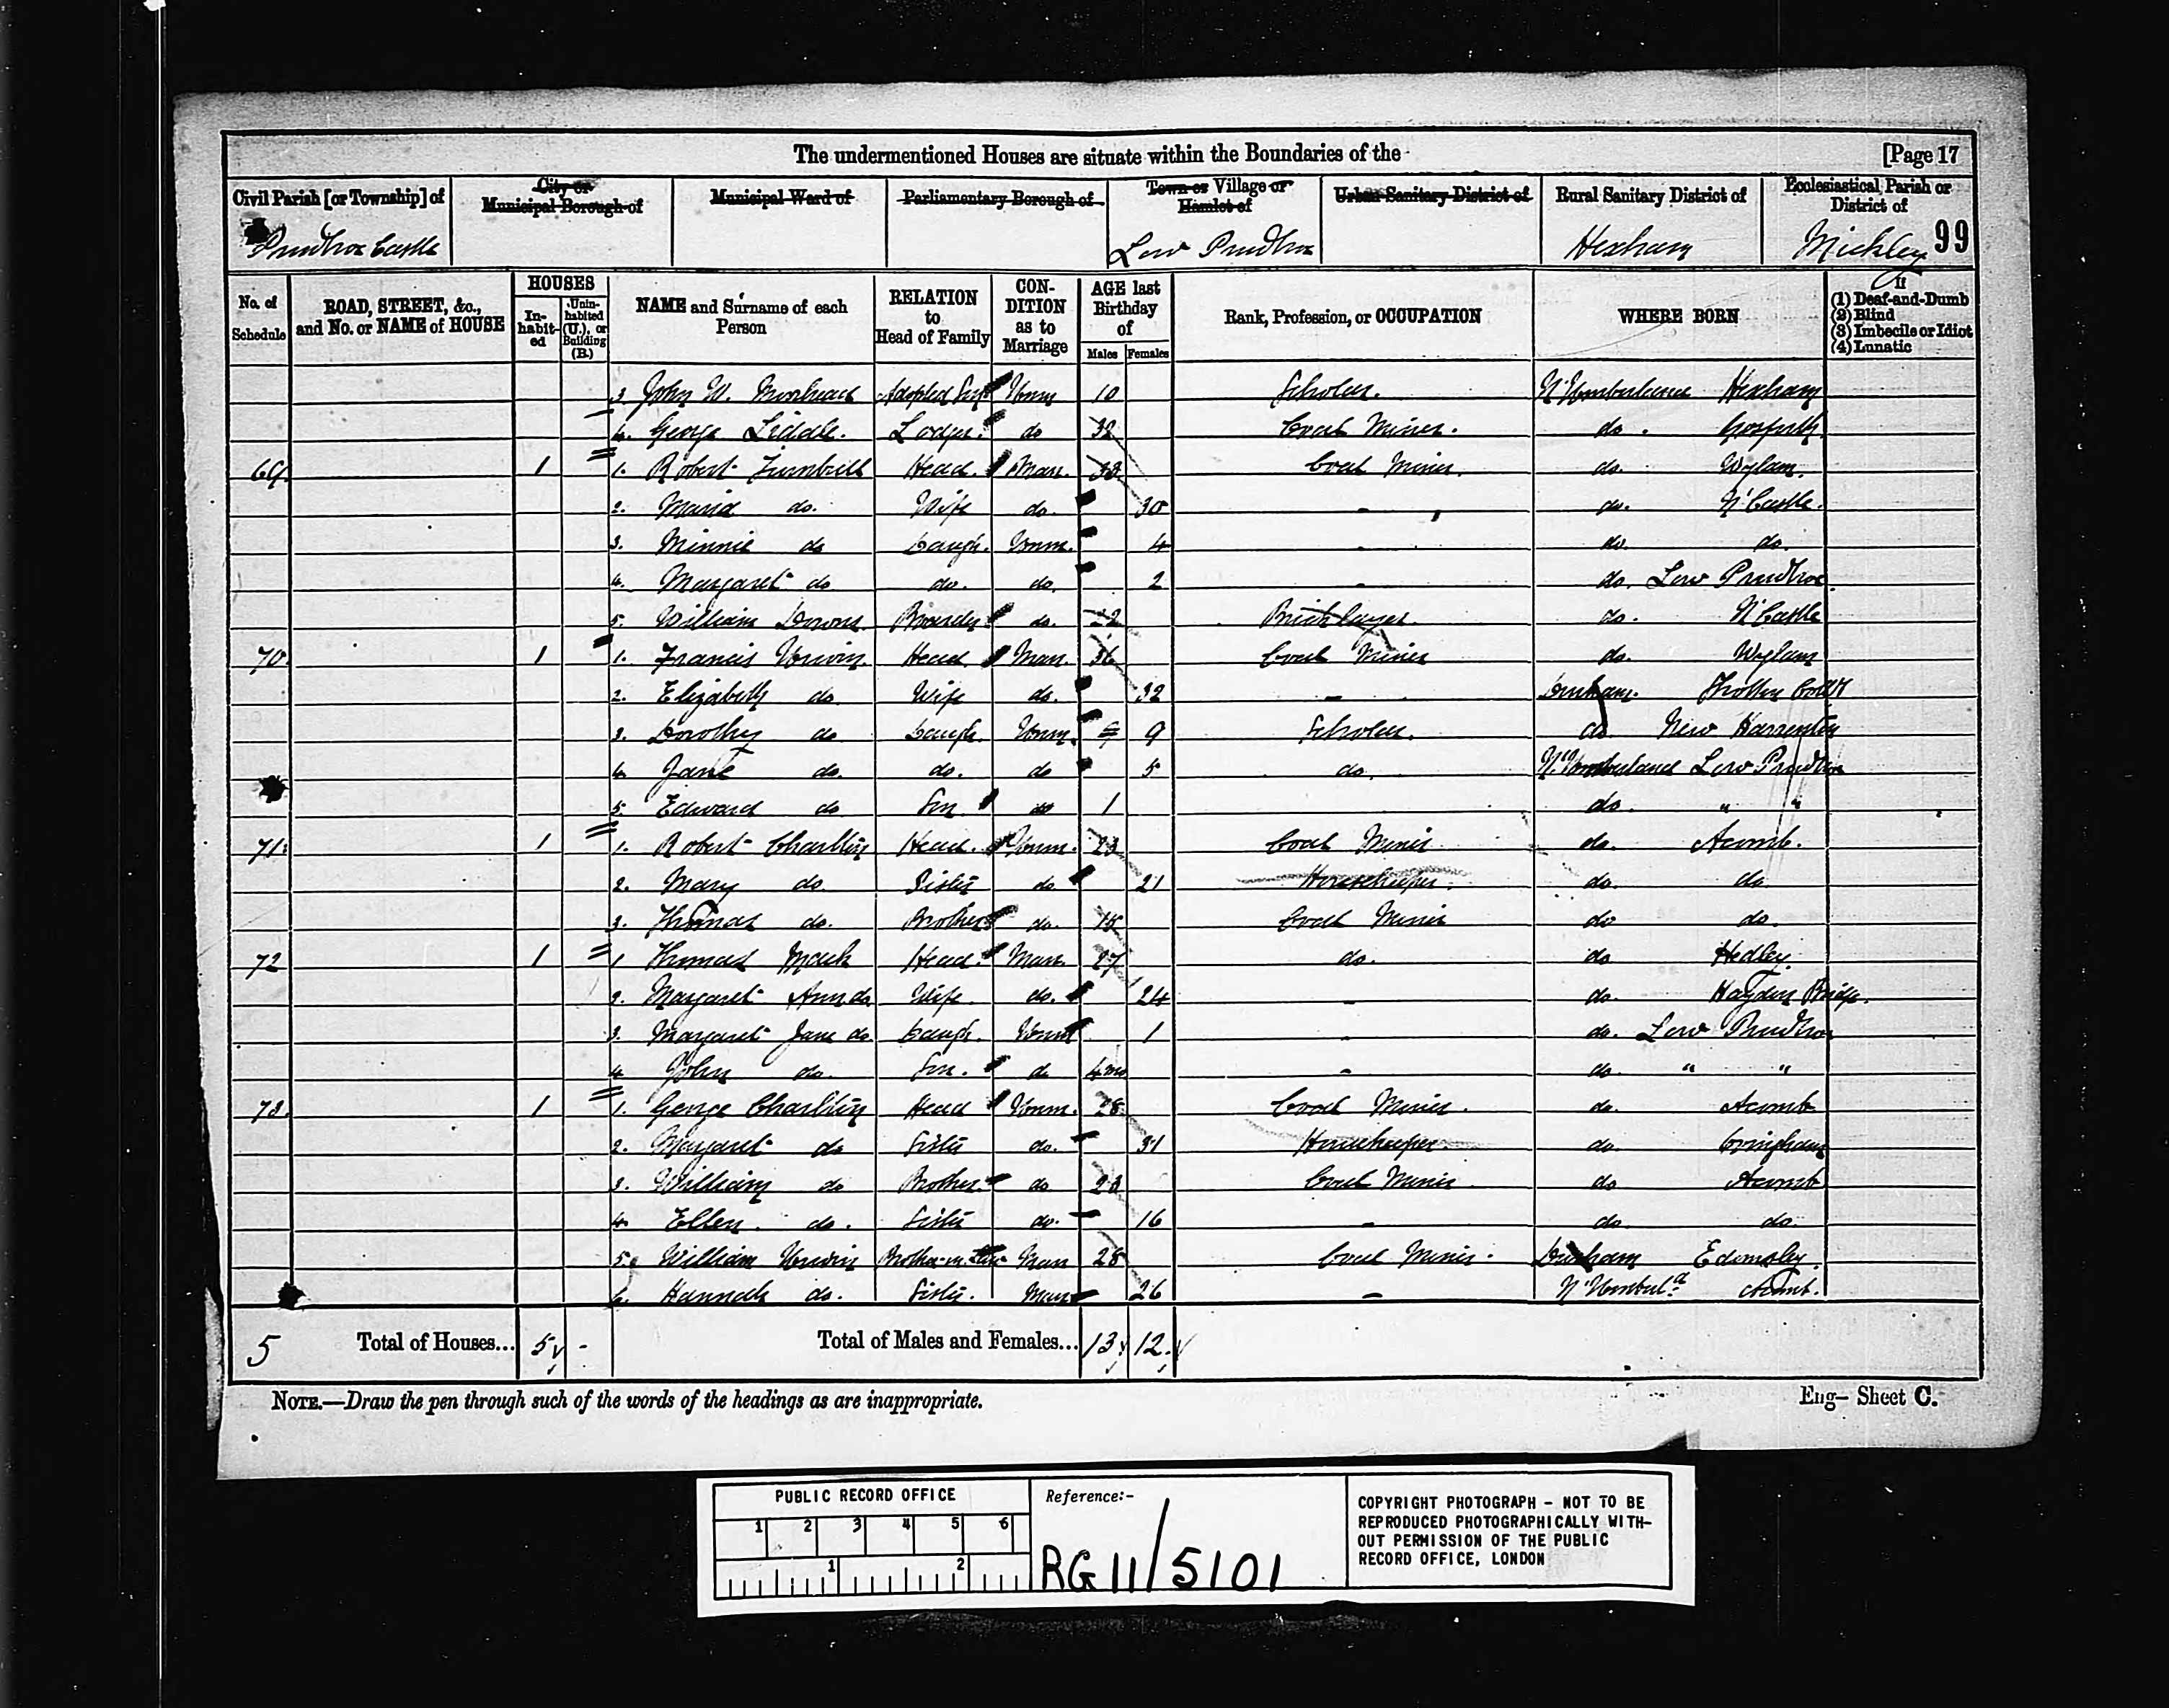 The undermentioned Houses are situate within the Boundaries of the [Page 17
Civil Parish [or Township] of City or Municipal Borough of Municipal Ward of Parliamentary Borough of Town or Village or Hamlet of Urban Sanitary District of Rural Sanitary District of Ecclesiastical Parish or District of
Prudhoe Castle Low Prudhoe Hexham Mickley 99
No. of Schedule ROAD, STREET, &c., and No. or NAME of HOUSE HOUSES Inhabited Uninhabited (U.), or Building (B.) NAME and Surname of each Person RELATION to Head of Family CONDITION as to Marriage AGE last Birthday of Males Females Rank, Profession, or OCCUPATION WHERE BORN If (1) Deaf-and-Dumb (2) Blind (3) Imbecile or Idiot (4) Lunatic
3. John W. Adopted Son Unm 10 Scholar. N'Umberland Hexham
4. George Liddle. Lodger. do 32 Coal Miner. do. Gosforth
69. 1 1. Robert Turnbull Head. Mar. 33 Coal Miner. do. Wylam.
2. Maria do. Wife do. 30 - do. N'Castle.
3. Minnie do Daugh. Unm. 4 - do. do.
4. Margaret do do. do. 2 - do. Low Prudhoe
5. William Downs Boarder do. 22 Bricklayer. do. N'Castle
70. 1 1. Francis Urwin. Head. Mar. 36 Coal Miner do. Wylam
2. Elizabeth do. Wife do. 32 - Durham.
3. Dorothy do Daugh. Unm. 9 Scholar. do. New Harrenton
4. Jane do. do. do 5 do. N'Umberland Low Prudhoe
5. Edward do Son. do 1 do. " "
71. 1 1. Robert Charlton Head. Unm. 23 Coal Miner do. Acomb.
2. Mary do. Sister do 21 Housekeeper. do. do
3. Thomas do. Brother do. 18 Coal Miner do do.
72 1 1 Thomas Head. Mar. 27 do. do Hedley.
2. Margaret Ann do. Wife. do. 24 - do. Haydon Bridge.
3. Margaret Jane do. Daugh. Unm 1 - do. Low Prudhoe
4. John do. Son. do 4 mo - do. " "
73. 1 1. George Charlton Head Unm. 28 Coal Miner. do. Acomb
2. Margaret do Sister do. 31 Housekeeper. do. Ovingham
3. William do Brother. do 23 Coal Miner do Acomb
4. Ellen. do. Sister do. 16 - do do.
5. William Urwin Brother-in-law Mar 28 Coal Miner. Durham Edmonsley.
6. Hannah do. Sister. Mar 26 - N'Umberld. Acomb.
5 Total of Houses... 5 - Total of Males and Females... 13 12.
NOTE.—Draw the pen through such of the words of the headings as are inappropriate. Eng- Sheet C.
PUBLIC RECORD OFFICE Reference:-
1 2 3 4 5 6
1 2
RG 11/5101
COPYRIGHT PHOTOGRAPH - NOT TO BE
REPRODUCED PHOTOGRAPHICALLY WITH-
OUT PERMISSION OF THE PUBLIC
RECORD OFFICE, LONDON